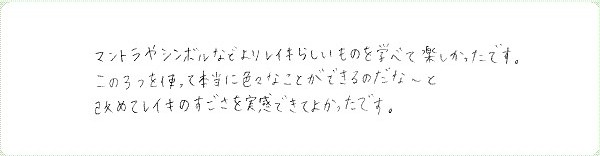 マントラやシンボルなどよりレイキらしいものを学べて楽しかったです。
この3つを使って本当に色々なことができるのだな～と
改めてレイキのすごさを実感できてよかったです。